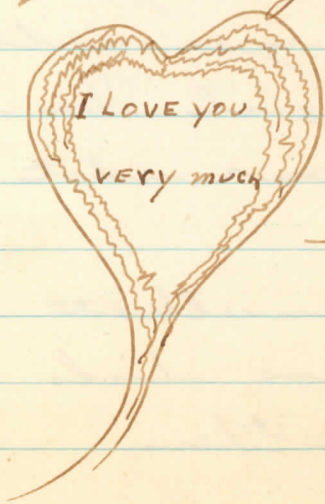 I LOVE you
VERY much